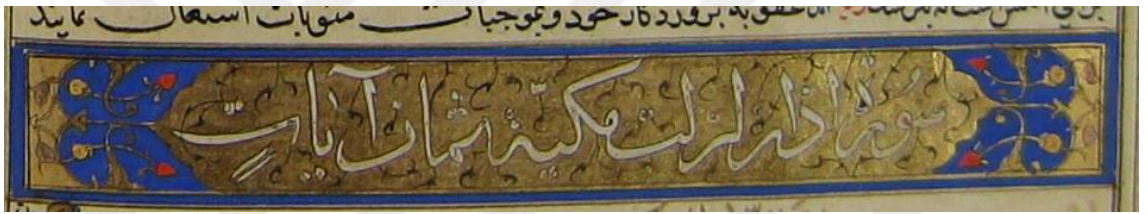 به پروردگار خود و بموجبات مثوبات اشتغال نمایند
سورة اذا زلزلت مكية ثمان آيات